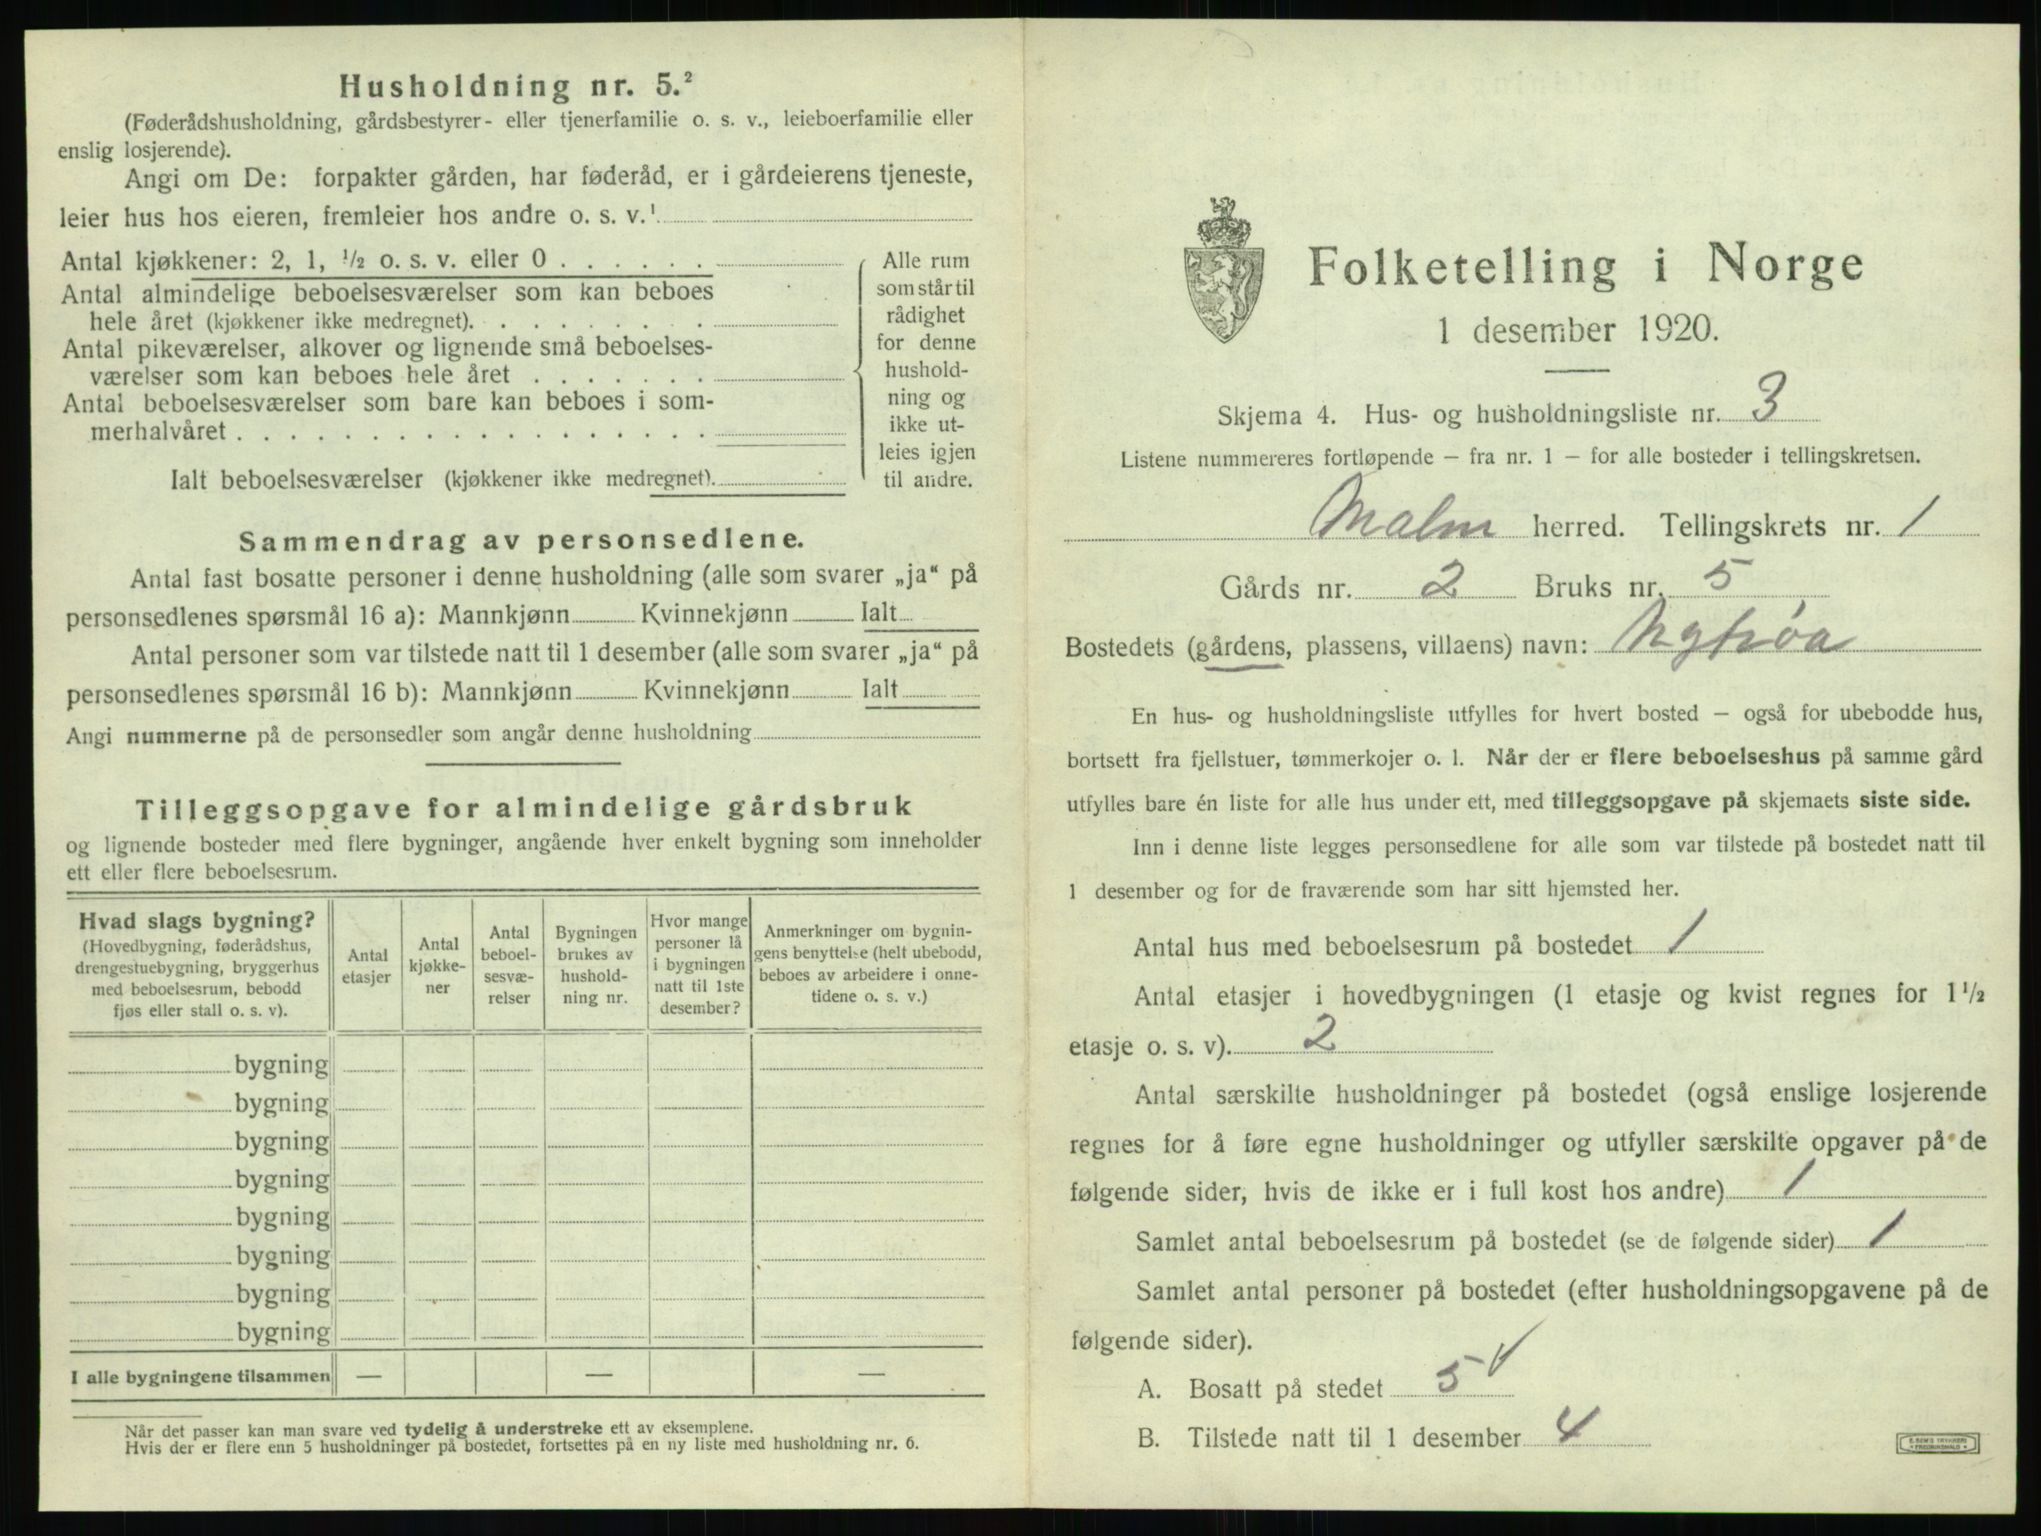 Husholdning nr. 5.²
(Føderådshusholdning, gårdsbestyrer- eller tjenerfamilie o. s. v., leieboerfamilie eller
enslig losjerende).
Angi om De: forpakter gården, har føderåd, er i gårdeierens tjeneste,
leier hus hos eieren, fremleier hos andre o. s. v.¹
Antal kjøkkener: 2, 1, ½ o. s. v. eller 0 . . . . . .
Antal almindelige beboelsesværelser som kan beboes
hele året (kjøkkener ikke medregnet). . . . . . . . .
Antal pikeværelser, alkover og lignende små beboelses-
værelser som kan beboes hele året . . . . . . .
Antal beboelsesværelser som bare kan beboes i som-
merhalvåret . . . . . . . . . . . . . . . . . .
Ialt beboelsesværelser (kjøkkener ikke medregnet).
Alle rum
som står til
rådighet
for denne
hushold-
ning og
ikke ut-
leies igjen
til andre.
Sammendrag av personsedlene.
Antal fast bosatte personer i denne husholdning (alle som svarer „ja“ på
personsedlenes spørsmål 16 a): Mannkjønn Kvinnekjønn Ialt
Antal personer som var tilstede natt til 1 desember (alle som svarer „ja“ på
personsedlenes spørsmål 16 b): Mannkjønn Kvinnekjønn Ialt
Angi nummerne på de personsedler som angår denne husholdning
Tilleggsopgave for almindelige gårdsbruk
og lignende bosteder med flere bygninger, angående hver enkelt bygning som inneholder
ett eller flere beboelsesrum.
Hvad slags bygning?
(Hovedbygning, føderådshus,
drengestuebygning, bryggerhus
med beboelsesrum, bebodd
fjøs eller stall o. s. v).
Antal
etasjer
Antal
kjøkke-
ner
Antal
beboel-
sesvæ-
relser
Bygningen
brukes av
hushold-
ning nr.
Hvor mange
personer lå
i bygningen
natt til 1ste
desember?
Anmerkninger om bygnin-
gens benyttelse (helt ubebodd,
beboes av arbeidere i onne-
tidene o. s. v.)
bygning
bygning
bygning
bygning
bygning
bygning
bygning
bygning
I alle bygningene tilsammen — — —
Når det passer kan man svare ved tydelig å understreke ett av eksemplene.
Hvis der er flere enn 5 husholdninger på bostedet, fortsettes på en ny liste med husholdning nr. 6.
Folketelling i Norge
1 desember 1920.
Skjema 4. Hus- og husholdningsliste nr. 3
Listene nummereres fortløpende – fra nr. 1 – for alle bosteder i tellingskretsen.
Malm herred. Tellingskrets nr. 1
Gårds nr. 2 Bruks nr. 5
Bostedets (gårdens, plassens, villaens) navn: Nytrøa
En hus- og husholdningsliste utfylles for hvert bosted – også for ubebodde hus,
bortsett fra fjellstuer, tømmerkojer o. l. Når der er flere beboelseshus på samme gård
utfylles bare én liste for alle hus under ett, med tilleggsopgave på skjemaets siste side.
Inn i denne liste legges personsedlene for alle som var tilstede på bostedet natt til
1 desember og for de fraværende som har sitt hjemsted her.
Antal hus med beboelsesrum på bostedet 1
Antal etasjer i hovedbygningen (1 etasje og kvist regnes for 1½
etasje o. s. v). 2
Antal særskilte husholdninger på bostedet (også enslige losjerende
regnes for å føre egne husholdninger og utfyller særskilte opgaver på de
følgende sider, hvis de ikke er i full kost hos andre) 1
Samlet antal beboelsesrum på bostedet (se de følgende sider) 1
Samlet antal personer på bostedet (efter husholdningsopgavene på de
følgende sider).
A. Bosatt på stedet 5 ✓
B. Tilstede natt til 1 desember 4
E. SEM'S TRYKKERI
FREDRIKSHALD